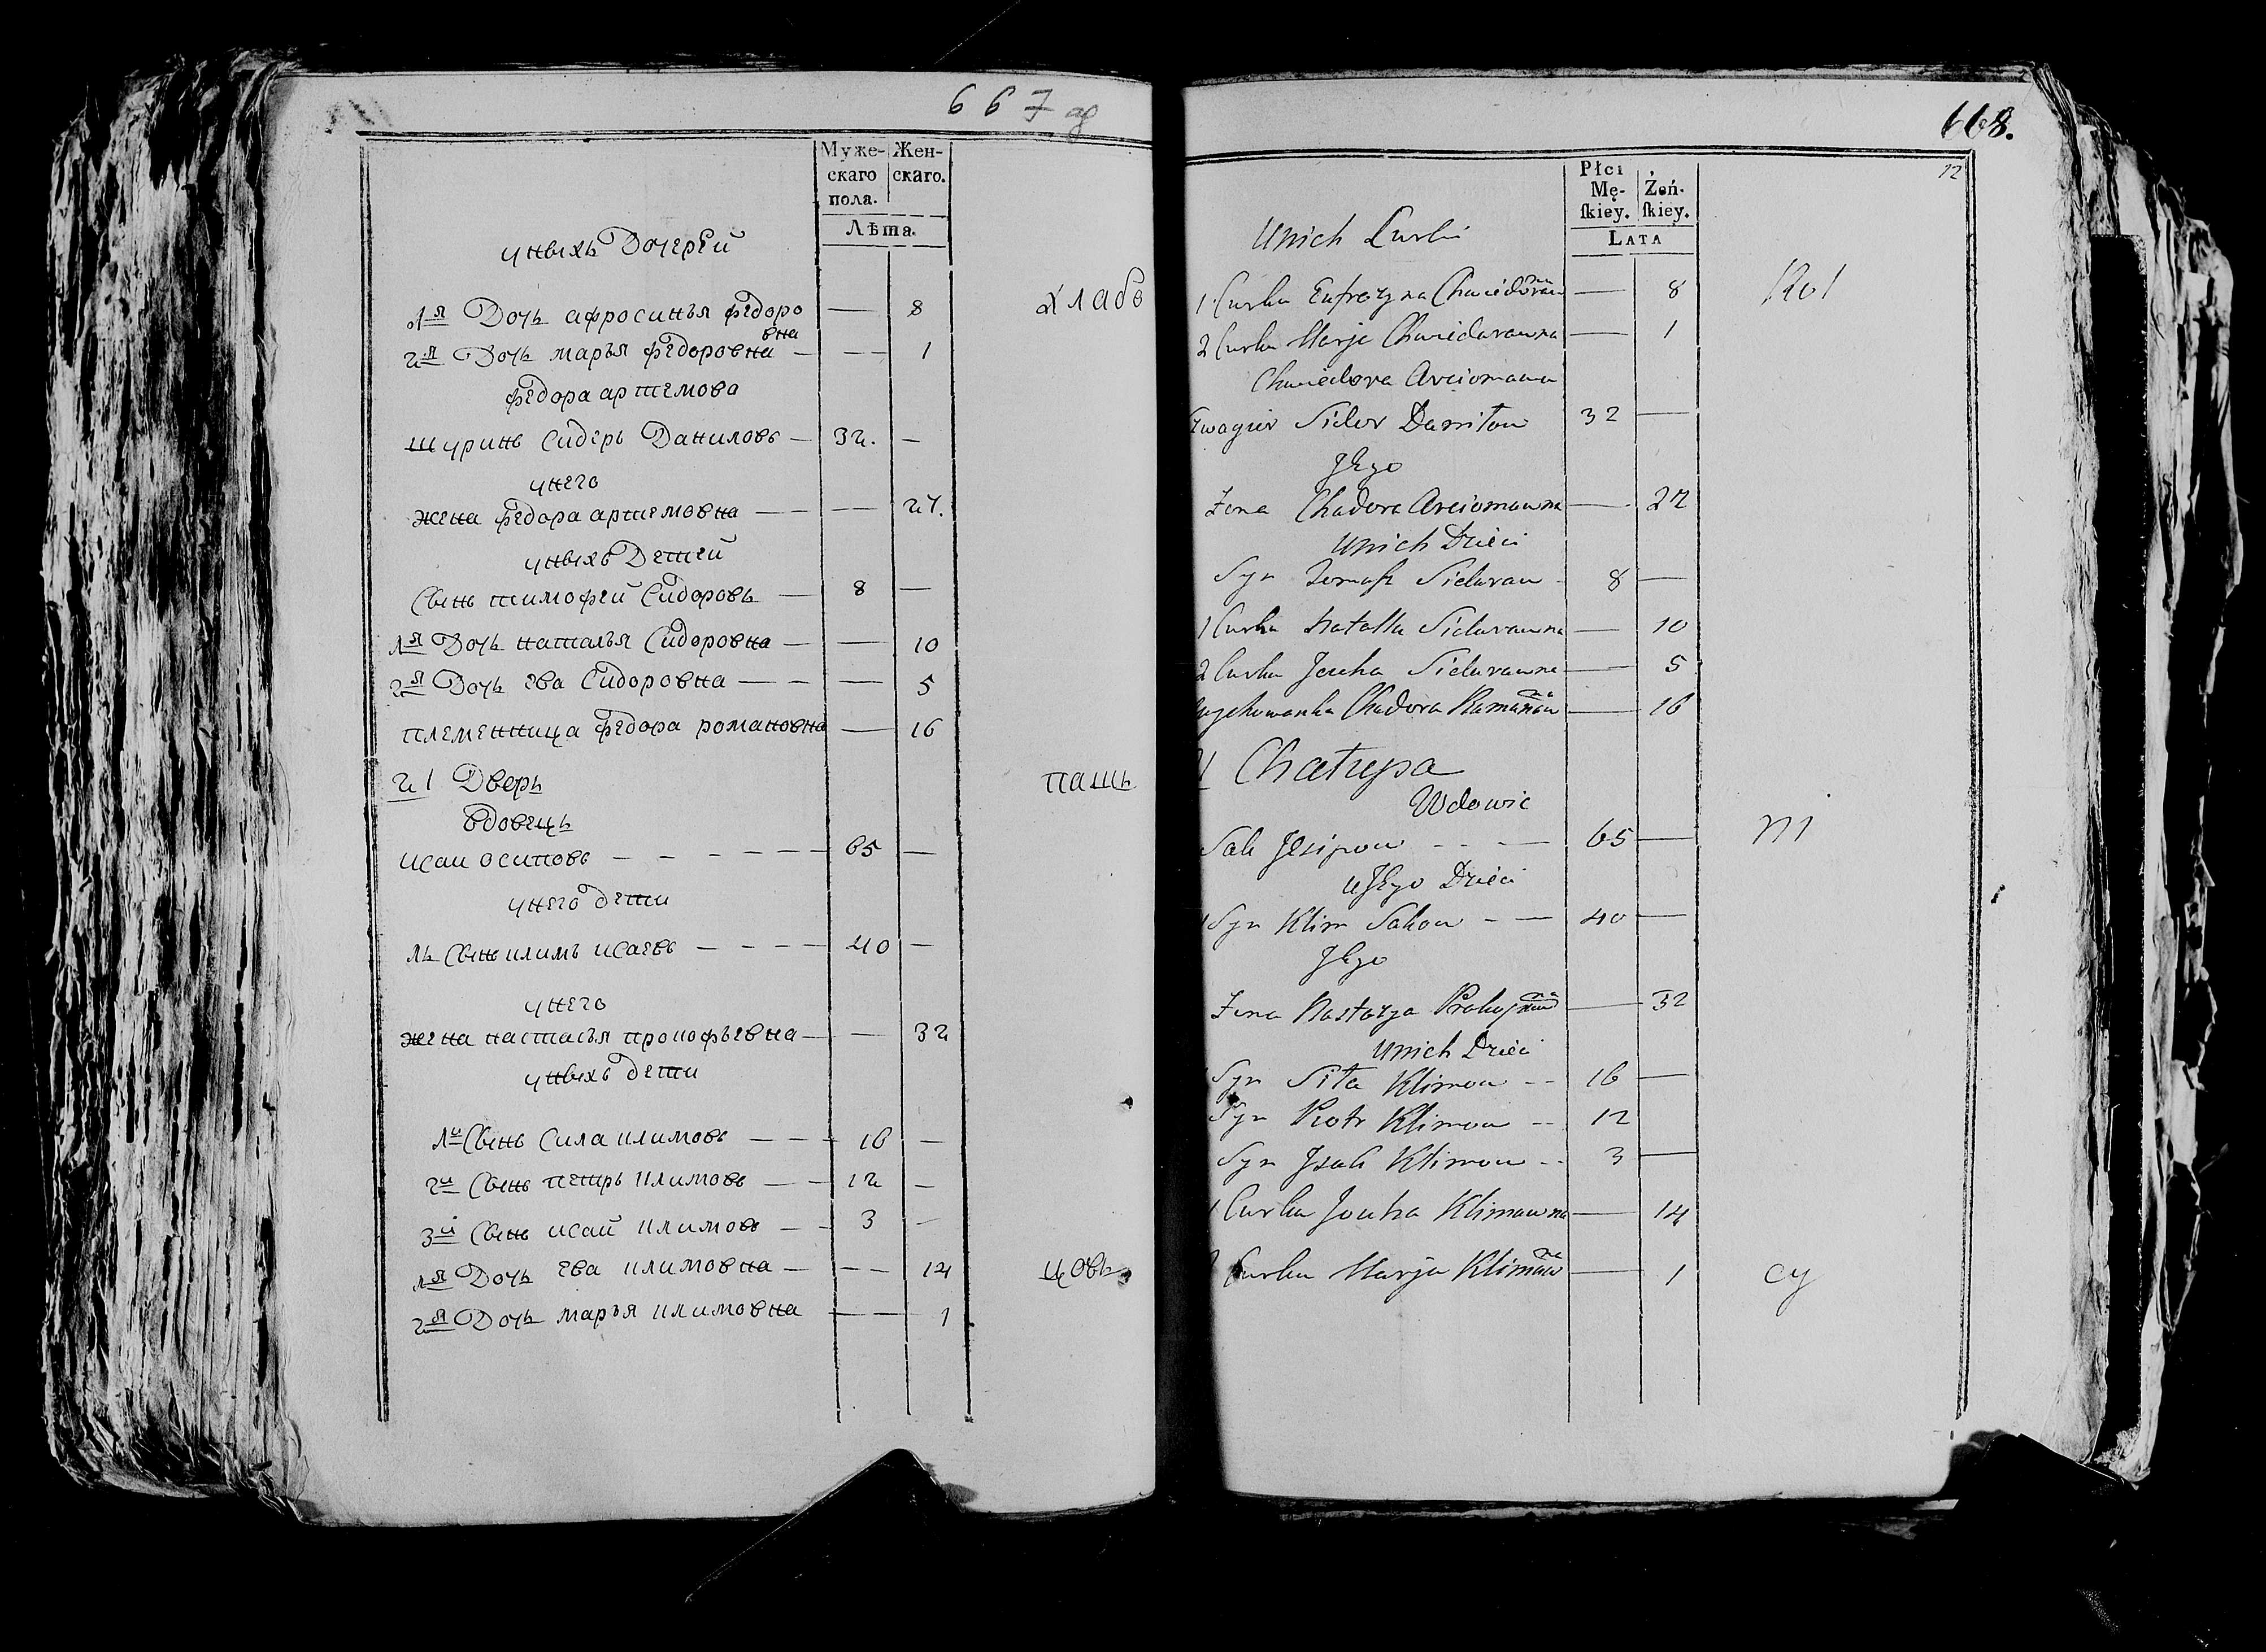 667 об
Муже-
скаго
пола.
Жен-
скаго.
Лѣта.
унихъ Дочерей
1я Дочь афросинья федоро
вна — 8
хлабо
2я Дочь марья федоровна — — 1
федора артемова
шуринъ Сидеръ Даниловъ — 32. —
унего
жена федора артемовна — — 27.
унихъ Детей
Сынъ тимофей Сидоровъ — 8 —
1я Дочь наталья Сидоровна — — 10
2я Дочь ева Сидоровна — — — 5
племенница федора романовна — 16
21 Дверь
пашь
вдовецъ
исаи осиповъ — — — — — — 65 —
унего дети
1ъ Сынъ климъ исаевъ — — — — 40 —
унего
жена настасья прокофьевна — — 32
унихъ дети
1й Сынъ Сила климовъ — — — 16 —
2й Сынъ петръ климовъ — — 12 —
3й Сынъ исай климовъ — — 3 —
1я Дочь ева климовна — — — 14
цовъ
2я Дочь марья климовна — — 1
668.
12
Płci
Mę-
ſkiey.
Żeń-
ſkiey.
LATA
Unich Curki
1 Curka Eufrozyna Chwiedorawna — 8
Rol
2 Curka Marja Chwiedarawna — 1
Chwiedora Arciomawa
Szwagier Sidor Daniłow 32 —
Jego
Żona Chadora Arciomawna — 27
Unich Dzieci
Syn Tomasz Sidaraw 8 —
1 Curka Natalla Sidarawna — 10
2 Curka Jeuka Sidarawna — 5
Chadora Ramanawna — 16
Chałupa
Wdowiec
ni
Jesipow - - — 65 —
U Jego Dzieci
1 Syn Klim Sakow - — 40 —
Jego
Żona Nastazya — 32
Unich Dzieci
Syn Siła Klimow -- 16 —
Syn Piotr Klimow -- 12
Syn Jsak Klimow -- 3 —
1 Curka Jeuka Klimawna — 14
2 Curka Marja Klimawna — 1
cy